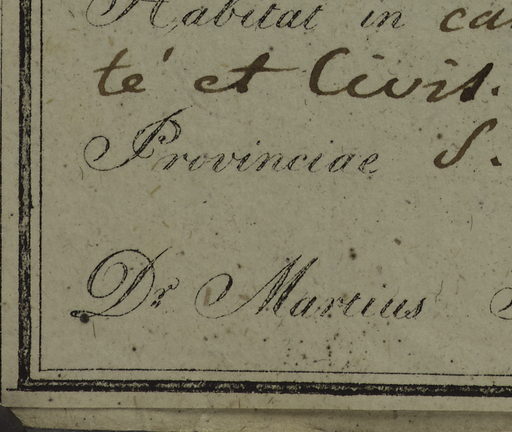 Habitat in
té et Civit.
Provinciae S.
Dr Martius